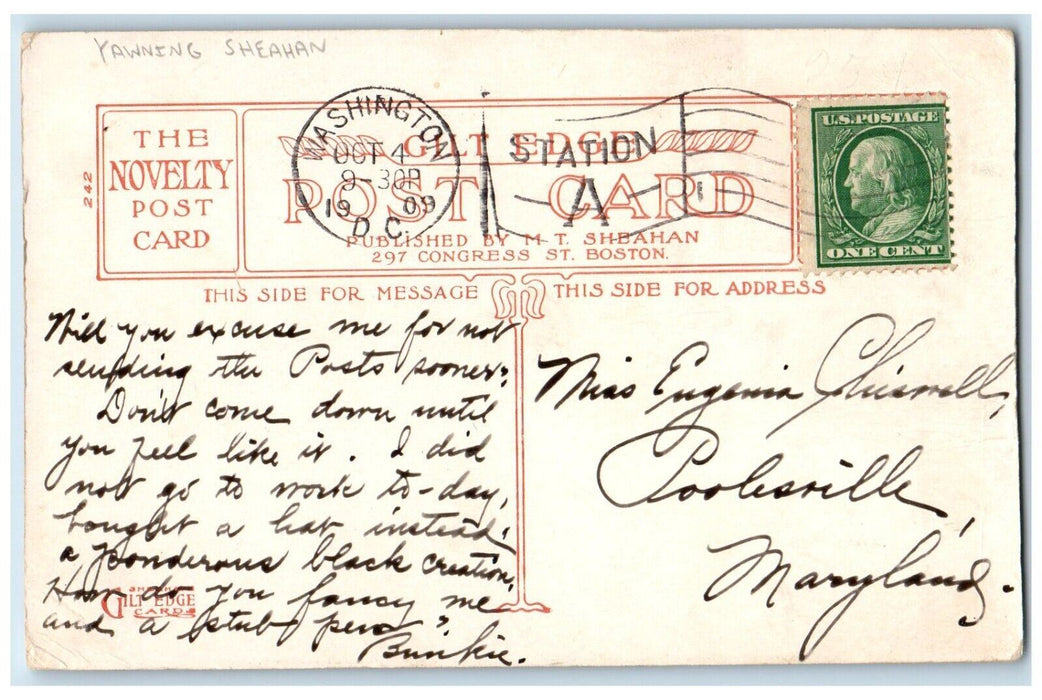 YAWNING SHEAHAN
THE
NOVELTY
POST
CARD
242
GILT EDGE
POST CARD
PUBLISHED BY M. T. SHEAHAN
297 CONGRESS ST. BOSTON.
WASHINGTON
OCT 4
9-30P
1909
D.C.
STATION
A
U.S. POSTAGE
ONE CENT
THIS SIDE FOR MESSAGE
THIS SIDE FOR ADDRESS
Will you excuse me for not
sending the Posts sooner?
Don't come down until
you feel like it. I did
not go to work to-day,
bought a hat instead,
a ponderous black creation.
How do you fancy me
and a stub pen"
Binkie.
GILT EDGE
CARDS
Miss Eugenia Chiswell,
Poolesville,
Maryland.